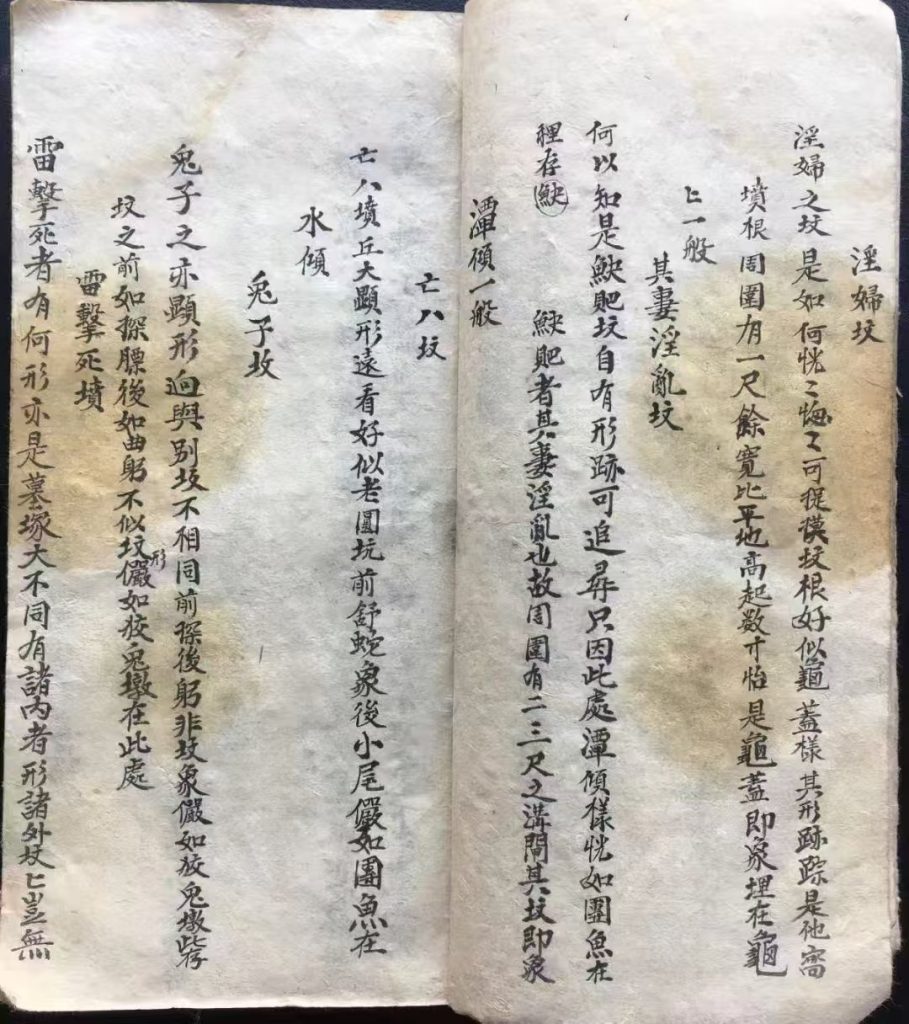 淫婦坟
淫婦之坟是如何恍〻惚〻可捉摸坟根好似龜蓋樣其形跡踪是他窩
墳根周圍有一尺餘寬比平地高起数寸恰是龜蓋即象埋在龜
匕一般
其妻淫亂坟
何以知是鮢肥坟自有形跡可追尋只因此處潭傾樣恍如團魚在
裡存鮢
鮢肥者其妻淫亂也故周圍有二三尺之溝間其坟即象
潭傾一般
亡八坟
亡八墳丘大顯形遠看好似老圓坑前舒蛇象後小尾儼如團魚在
水傾
兔子坟
兔子之亦顯形迥與别坟不相同前探後躬非坟象儼如狡兔墩此存
坟之前如探膘後如曲躬不似坟形儼如狡兔墩在此處
雷擊死墳
雷擊死者有何形亦是墓塚大不同有諸内者形諸外坟匕豈無